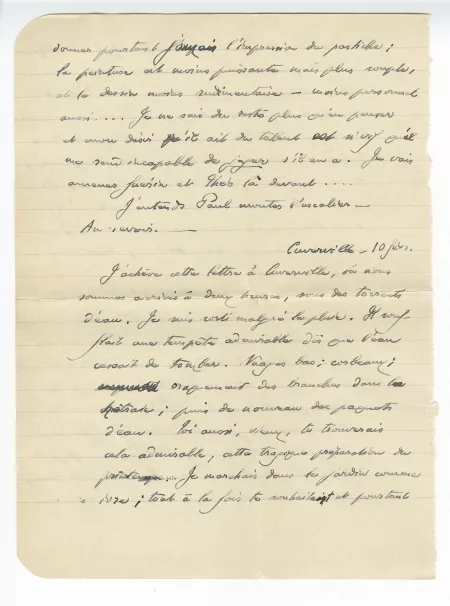 donner pourtant jamais l'impression du pastiche ;
la peinture est moins puissante mais plus souple,
et le dessin moins rudimentaire — moins personnel
aussi.... Je ne sais du reste plus qu'en penser
et mon désir qu'il ait du talent est si vif qu'il
me rend incapable de juger s'il en a. Je vais
amener et Théo là devant ....
J'entends Paul monter l'escalier —
Au revoir. —
Cuverville — 10 févr.
J'achève cette lettre à Cuverville, où nous
sommes arrivés à deux heures, sous des torrents
d'eau. Je suis sorti malgré la pluie. Il souf-
flait une tempête admirable dès que l'eau
cessait de tomber. Nuages bas ; corbeaux ;
craquement des branches dans la
hêtraie ; puis de nouveau des paquets
d'eau. Toi aussi, vieux, tu trouverais
cela admirable, cette tragique préparation du
printemps. Je marchais dans le jardin comme
ivre ; tout à la fois te souhaitant et pourtant